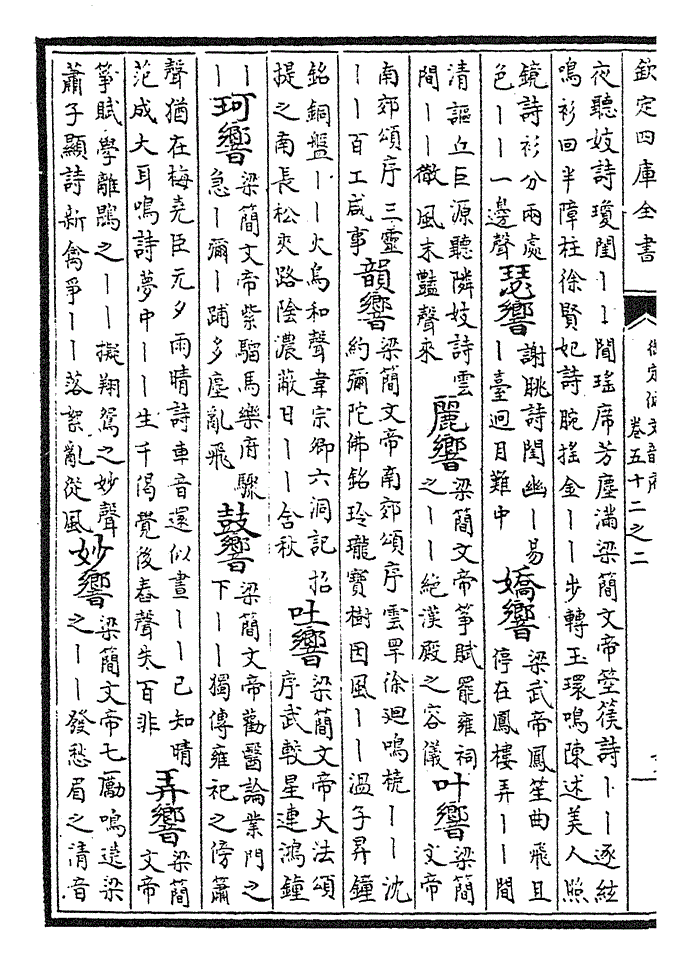 欽定四庫全書
卷五十二之二
夜聽妓詩瓊閨丨丨聞瑤席芳塵滿梁簡文帝箜篌詩丨丨逐絃
鳴衫回半障柱徐賢妃詩腕搖金丨丨步轉玉環鳴陳述美人照
鏡詩衫分兩處
色丨丨一邊聲
瑟響
謝眺詩閨幽丨易
丨臺迥目難中
嬌響
梁武帝鳳笙曲飛且
停在鳳樓弄丨丨間
清謳丘巨源聽隣妓詩雲
間丨丨徹風末豔聲來
麗響
梁簡文帝箏賦罷雍祠
之丨丨絕漢殿之容儀
叶響
梁簡
文帝
南郊頌序三靈
丨丨百工咸事
韻響
梁簡文帝南郊頌序雲罕徐迴鳴梢丨丨沈
約彌陀佛銘玲瓏寶樹因風丨丨溫子昇鐘
銘銅盤丨丨火烏和聲韋宗卿六洞記招
提之南長松夾路陰濃蔽日丨丨含秋
吐響
梁簡文帝大法頌
序武較星連鴻鐘
丨
丨
珂響
梁簡文帝紫騮馬樂府驟
急丨彌丨踊多塵亂飛
鼓響
梁簡文帝勸醫論業門之
下丨丨獨傳雍祀之傍簫
聲猶在梅堯臣元夕雨晴詩車音還似晝丨丨已知晴
范成大耳鳴詩夢中丨丨生千偈覺後舂聲失百非
弄響
梁簡
文帝
箏賦學離鵾之丨丨擬翔鴛之妙聲
蕭子顯詩新禽爭丨丨落絮亂從風
妙響
梁簡文帝七勵鳴遠梁
之丨丨發愁眉之清音